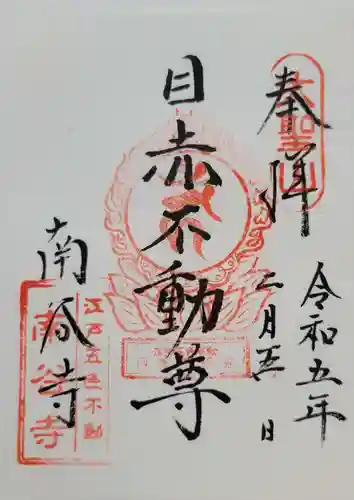 奉拝
大聖山
令和五年
二月五日
目赤不動尊
南谷寺
江戸五色不動
南谷寺